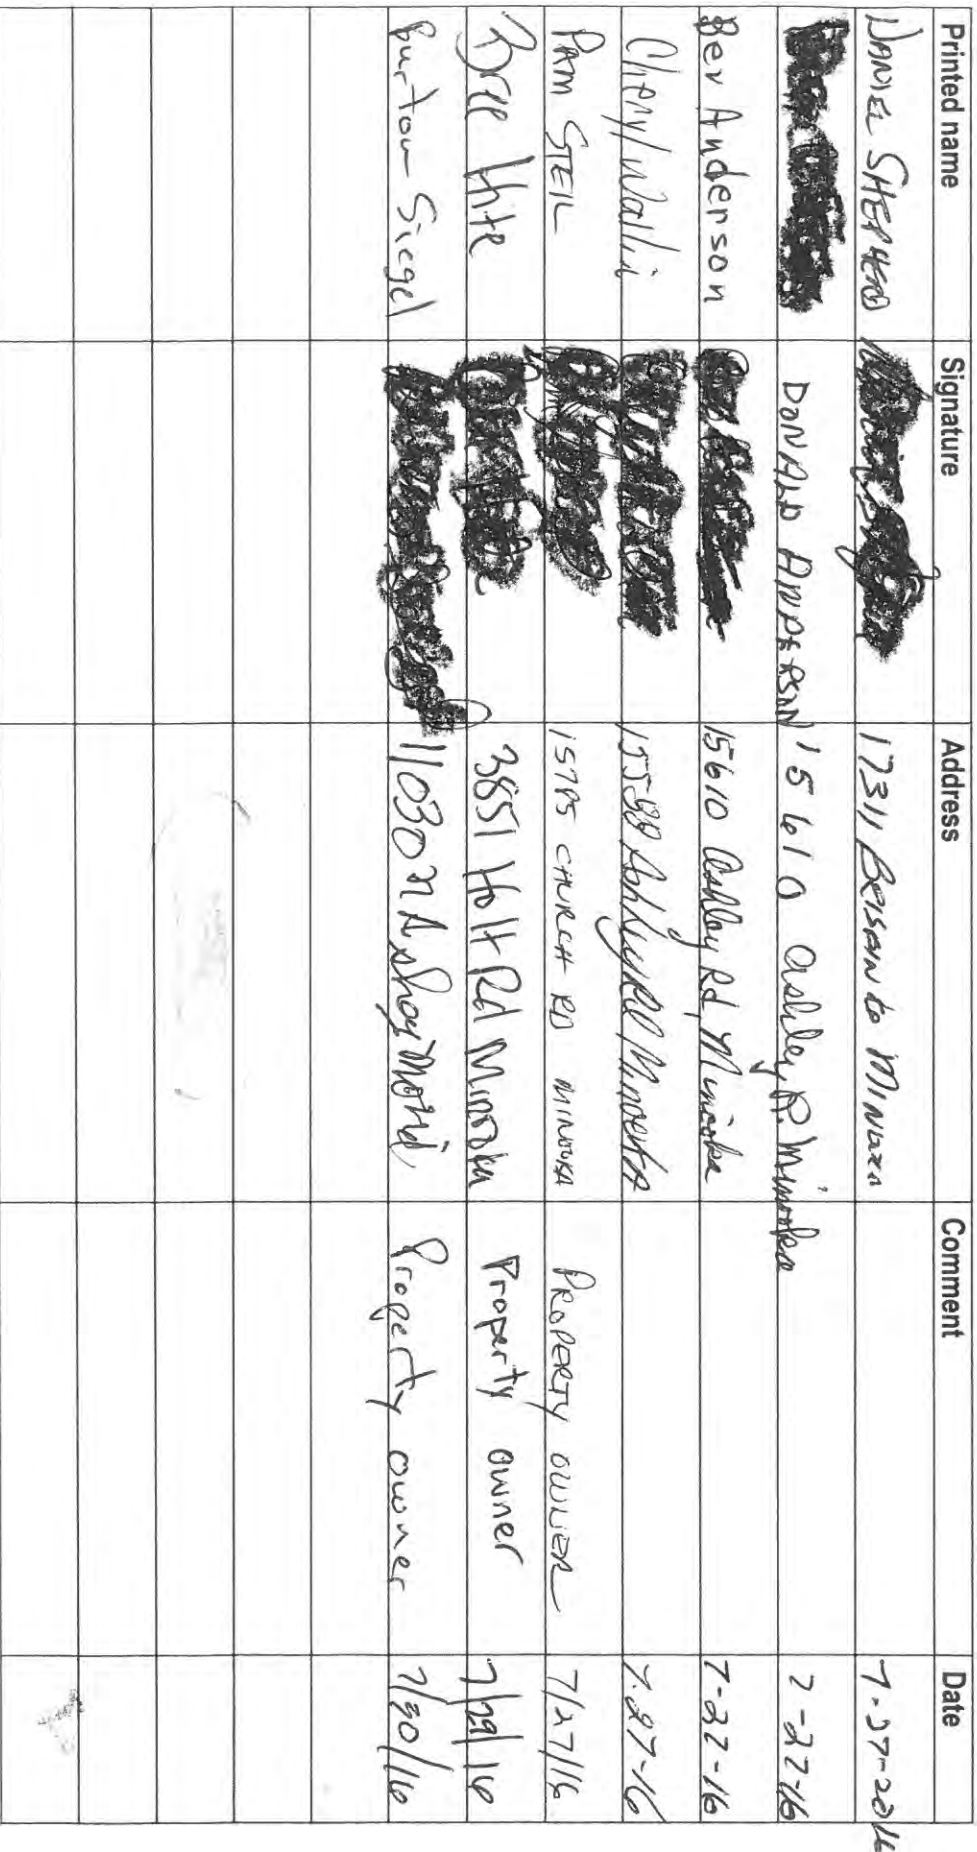 Printed name Signature Address Comment Date
DANIEL SHEPHERD 17311 to MINOOKA 7-27-2016
DONALD ANDERSON 15610 Ashley R. Minooka 7-27-16
Bev Anderson 15610 Ashley Rd, Minooka 7-27-16
Cheryl Wallin Ashley Rd Minooka 7-27-16
PAM STEIL 15795 CHURCH RD MINOOKA PROPERTY OWNER 7/27/16
Bree Hite 3851 Holt Rd Minooka Property owner 7/29/16
Burton Siegel 11030 Property owner 7/30/16